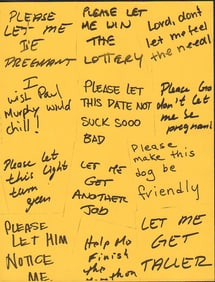 PLEASE
LET ME
BE
PREGNANT
PLEASE LET
ME WIN
THE
LOTTERY
Lord, don't
let me feel
the need!
I
wish Paul
Murphy would
chill!
PLEASE LET
THIS DATE NOT
SUCK SOOO
BAD
Please God
don't let
me be
pregnant
Please let
this light
turn
green
LET ME
GET
ANOTHER
JOB
Please
make this
dog be
friendly
PLEASE
LET HIM
NOTICE
ME.
Help Me
Finish
the
LET ME
GET
TALLER